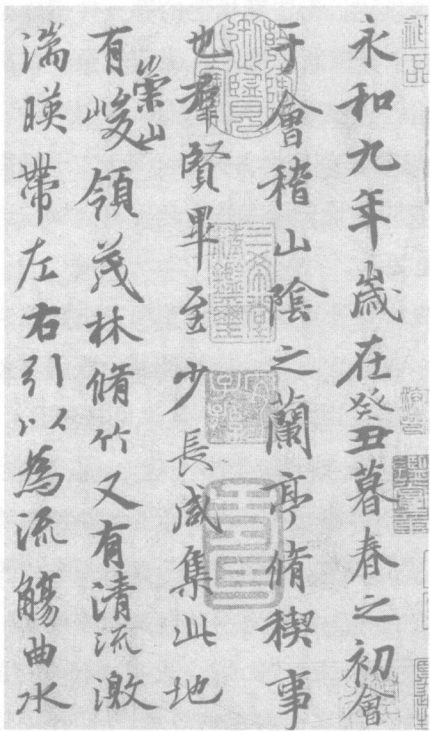 永和九年歲在癸丑暮春之初會
于會稽山陰之蘭亭脩稧事
也羣賢畢至少長咸集此地
有崇山峻領茂林脩竹又有清流激
湍暎帶左右引以為流觴曲水
三希堂